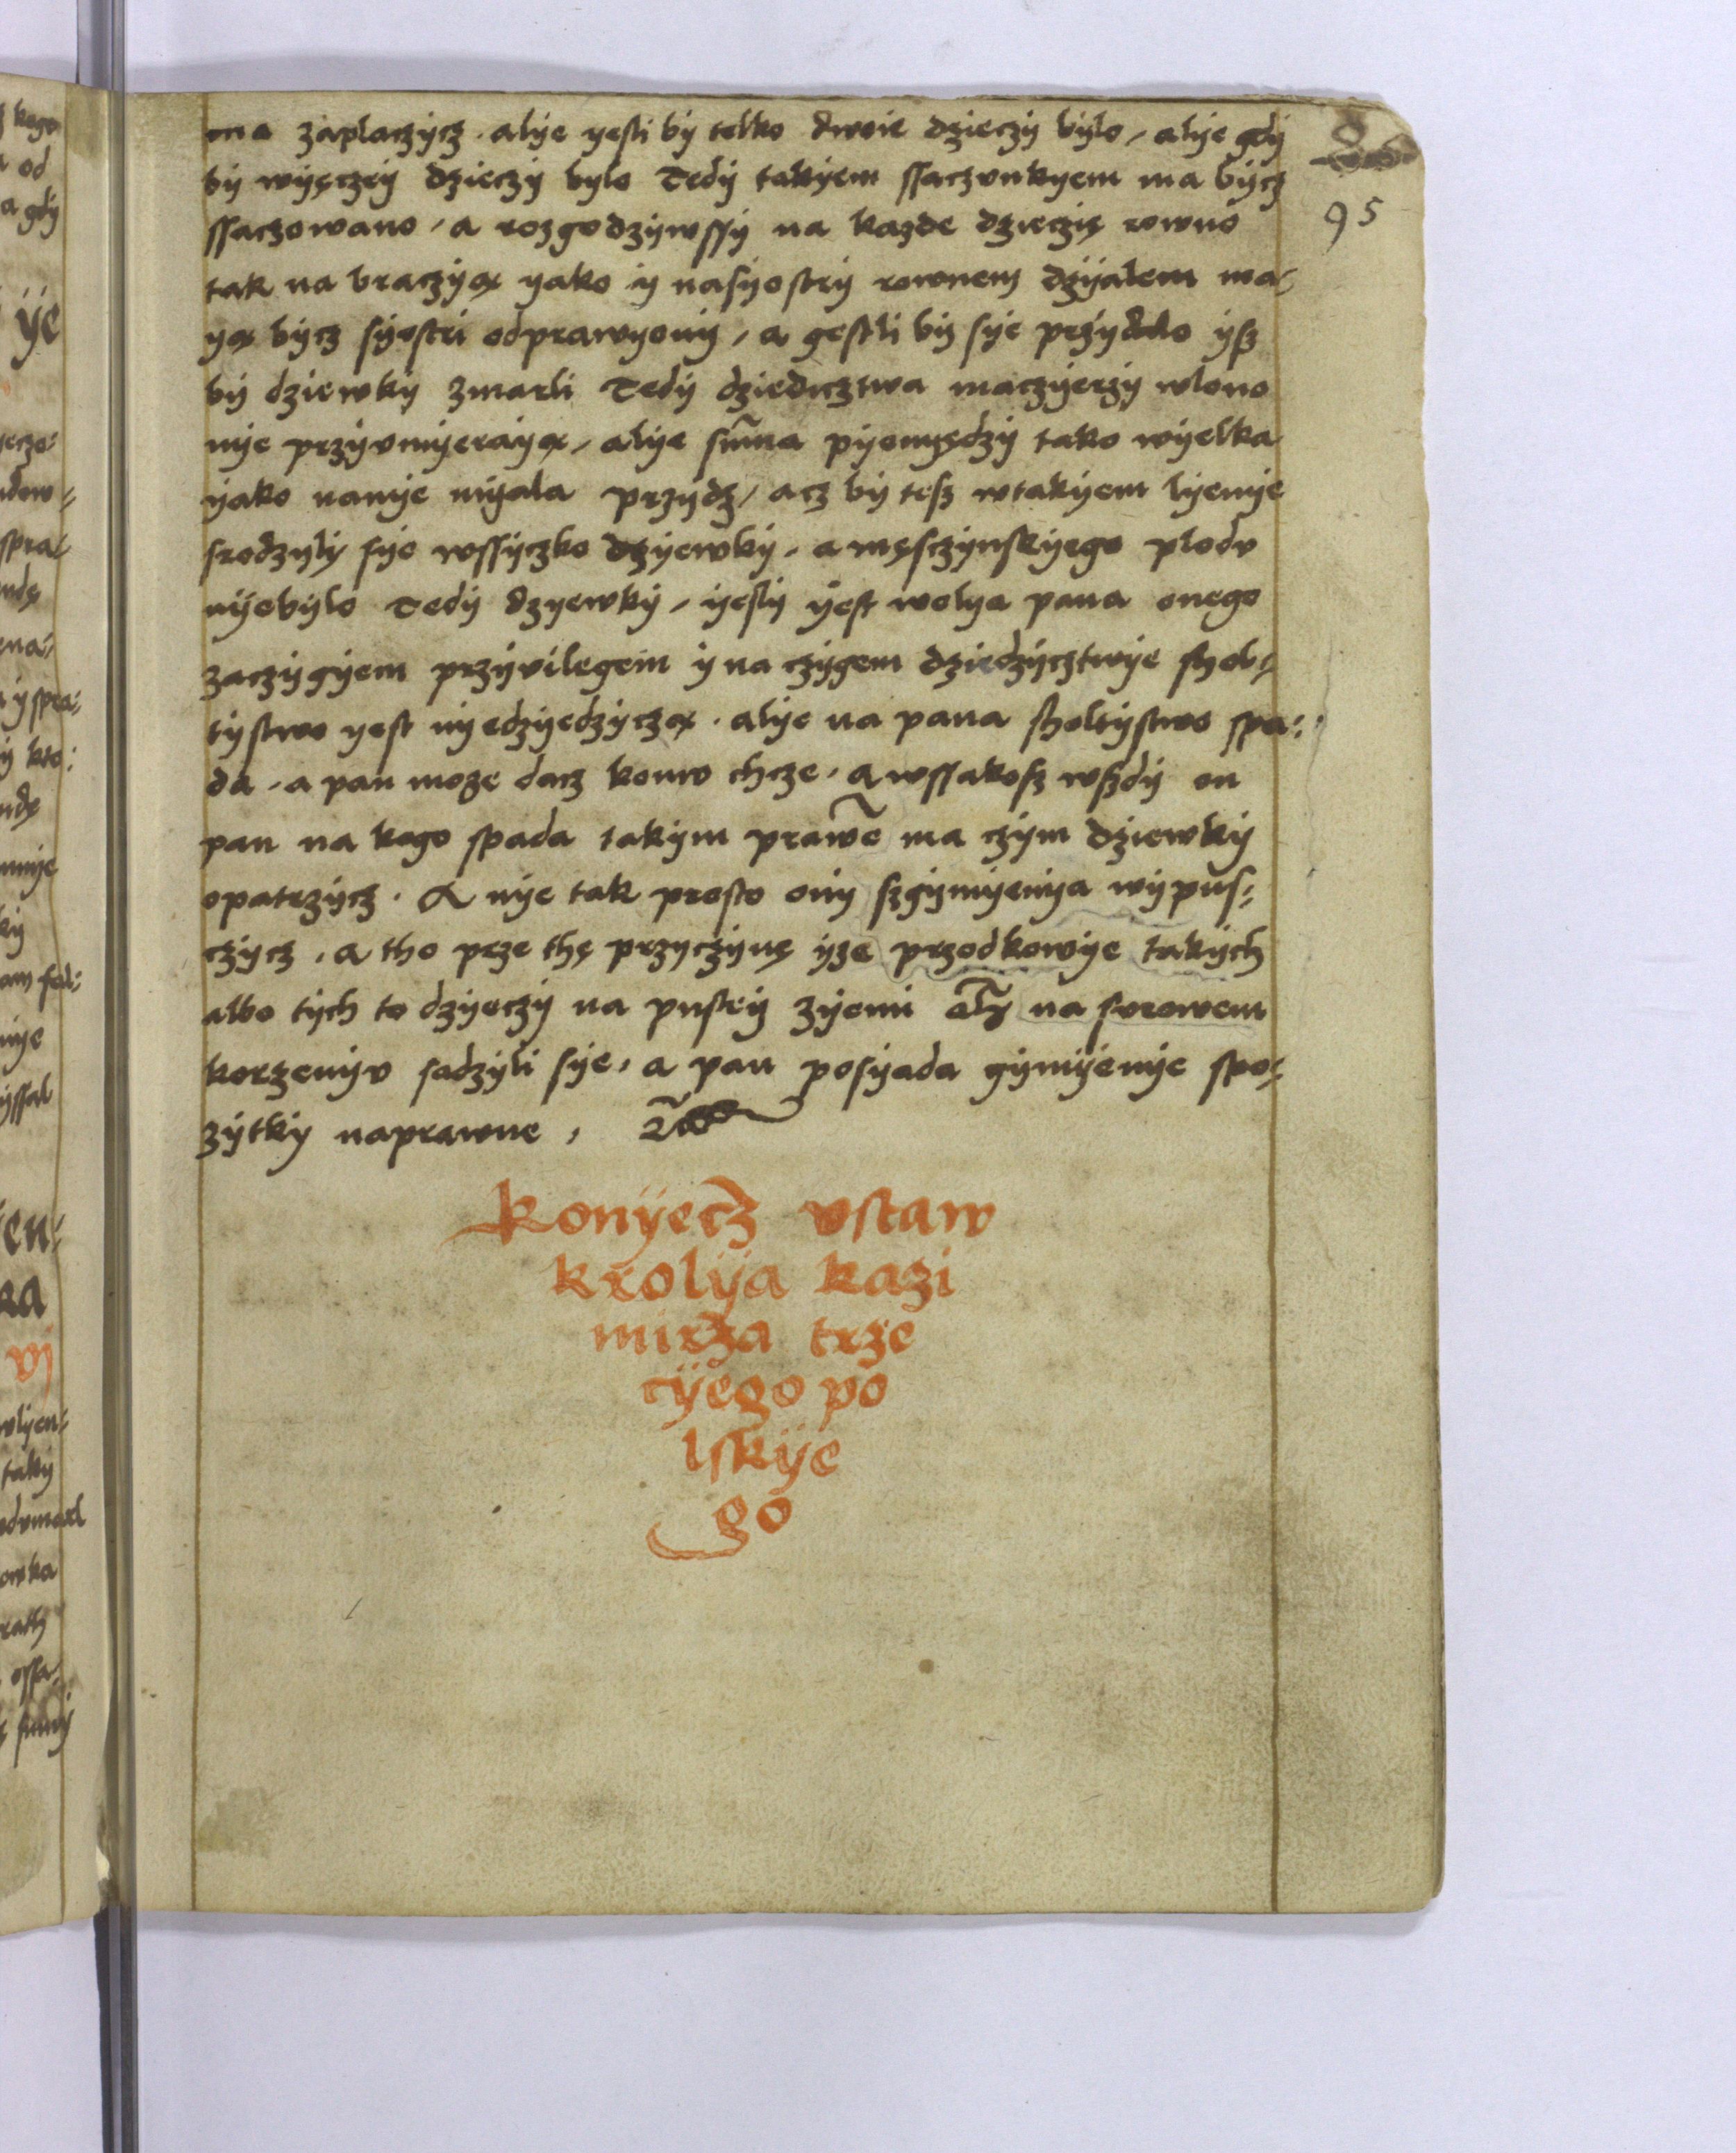 ma zaplaczycz. alye yesli by telko dwoie dzieczy bylo, alye gdy
by wyęczey dzieczy bylo Tedy takyem ssaczvnkyem ma bycz
ssaczowano, a rozgodzywssy na kazde dzieczię rowno
95
tak na braczyą yako y nasyostry rownem dzyalem ma-
yą bycz syostri odprawyony, a gestli by sye przydalo ysz
by dziewky zmarli Tedy dziedicztwa maczyerzy wlono
nye przyvmyerayą, alye sūma pyenyędzy tako wyelka
yako namye myala przydz, acz by tesz wtakyem lyemye
srodzyly syo wssyczko dzyewky, a męsczynskyego plodv
nyebylo Tedy dzyewky, yesly yest wolya pana onego
zaczygyem przyvilegem y na czygem dziedzycztwye shol-
tystwo yest nyedzyedzyczą. alye na pana sholtystwo spa-
da, a pan moze dacz komv chcze, a wssakosz wszdy on
pan na kogo spada takym prawē ma czym dziewky
opatrzycz. A nye tak prosto ony szgymyenya wypus-
czycz, a tho prze thę przyczynę yze przodkowye takych
albo tych to dzyeczy na pustey zyemi na svrowem
korzenyv sadzyli sye, a pan posyada gymyenye spo-
zytky naprawne,
Konyecz vstaw
krolya kazi
mirza trze
cyego po
lskye
go